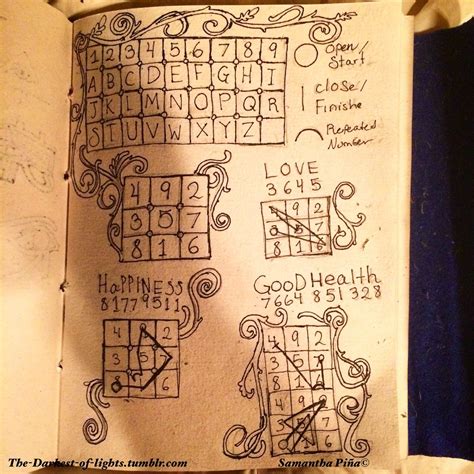 1 2 3 4 5 6 7 8 9
A B C D E F G H I
J K L M N O P Q R
S T U V W X Y Z
Open/
Start
close/
Finishe
Repeated
Number
4 9 2
3 5 7
8 1 6
LOVE
3645
4 9 2
3 5 7
8 1 6
HaPPINESS
81779511
4 2
3 5 7
6
GOOD HEalth
7664 851328
4 9 2
3 5
8 1 6
4 2
3 5 7
8 1 6
The-Darkest-of-lights.tumblr.com
Samantha Piña©